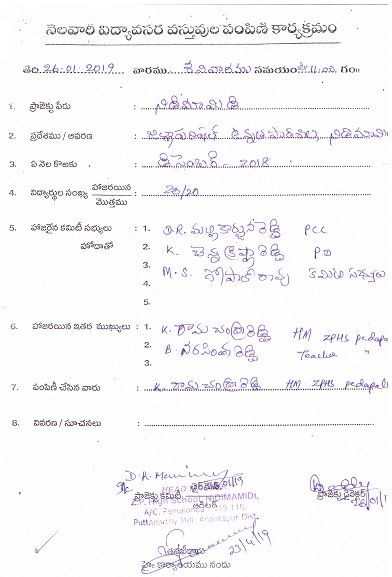 నెలవారి విద్యావసర వస్తువుల పంపిణి కార్యక్రమం
తేది: 26.01.2019 వారము శనివారము సమయం 11.00 గం॥
1. ప్రాజెక్టు పేరు : నిడిమామిడి
2. ప్రదేశము / ఆవరణ :
3. ఏ నెల కొఱకు : డిసెంబర్ - 2018
4. విద్యార్థుల సంఖ్య హాజరయిన / మొత్తము : 20/20
5. హాజరైన కమిటీ సభ్యులు హోదాతో : 1. D.R. మల్లికార్జునరెడ్డి PCC
2. K. చెన్నక్రిష్ణారెడ్డి PD
3. M.S. గోపాల్ రావు కమిటి సభ్యులు
4.
5.
6. హాజరయిన ఇతర ముఖ్యులు : 1. K. రామచంద్రారెడ్డి HM ZPHS
2. B. నరసింహారెడ్డి Teacher "
3.
7. పంపిణీ చేసిన వారు : K. రామచంద్రారెడ్డి HM ZPHS
8. వివరణ / సూచనలు :
ప్రాజెక్టు కమిటి చైర్మన్ ప్రాజెక్టు డైరెక్టర్
Z.P. High School, NIDIMAMIDI,
A/C. Penukonda - 515 110.
Puttaparthy Mdl. Anantapur Dist.
ఆడిటర్
23/4/19
హై: కార్యాలయము నందు